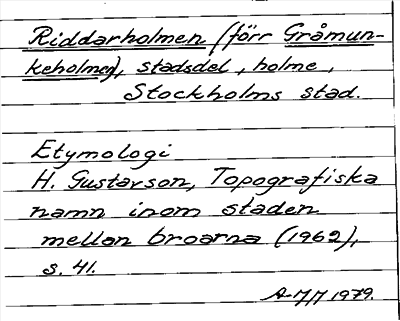 Riddarholmen (förr Gråmun-
keholmen), stadsdel, holme,
Stockholms stad.
Etymologi
H. Gustavson, Topografiska
namn inom staden
mellan broarna (1962),
s. 41.
A-MM 1979.